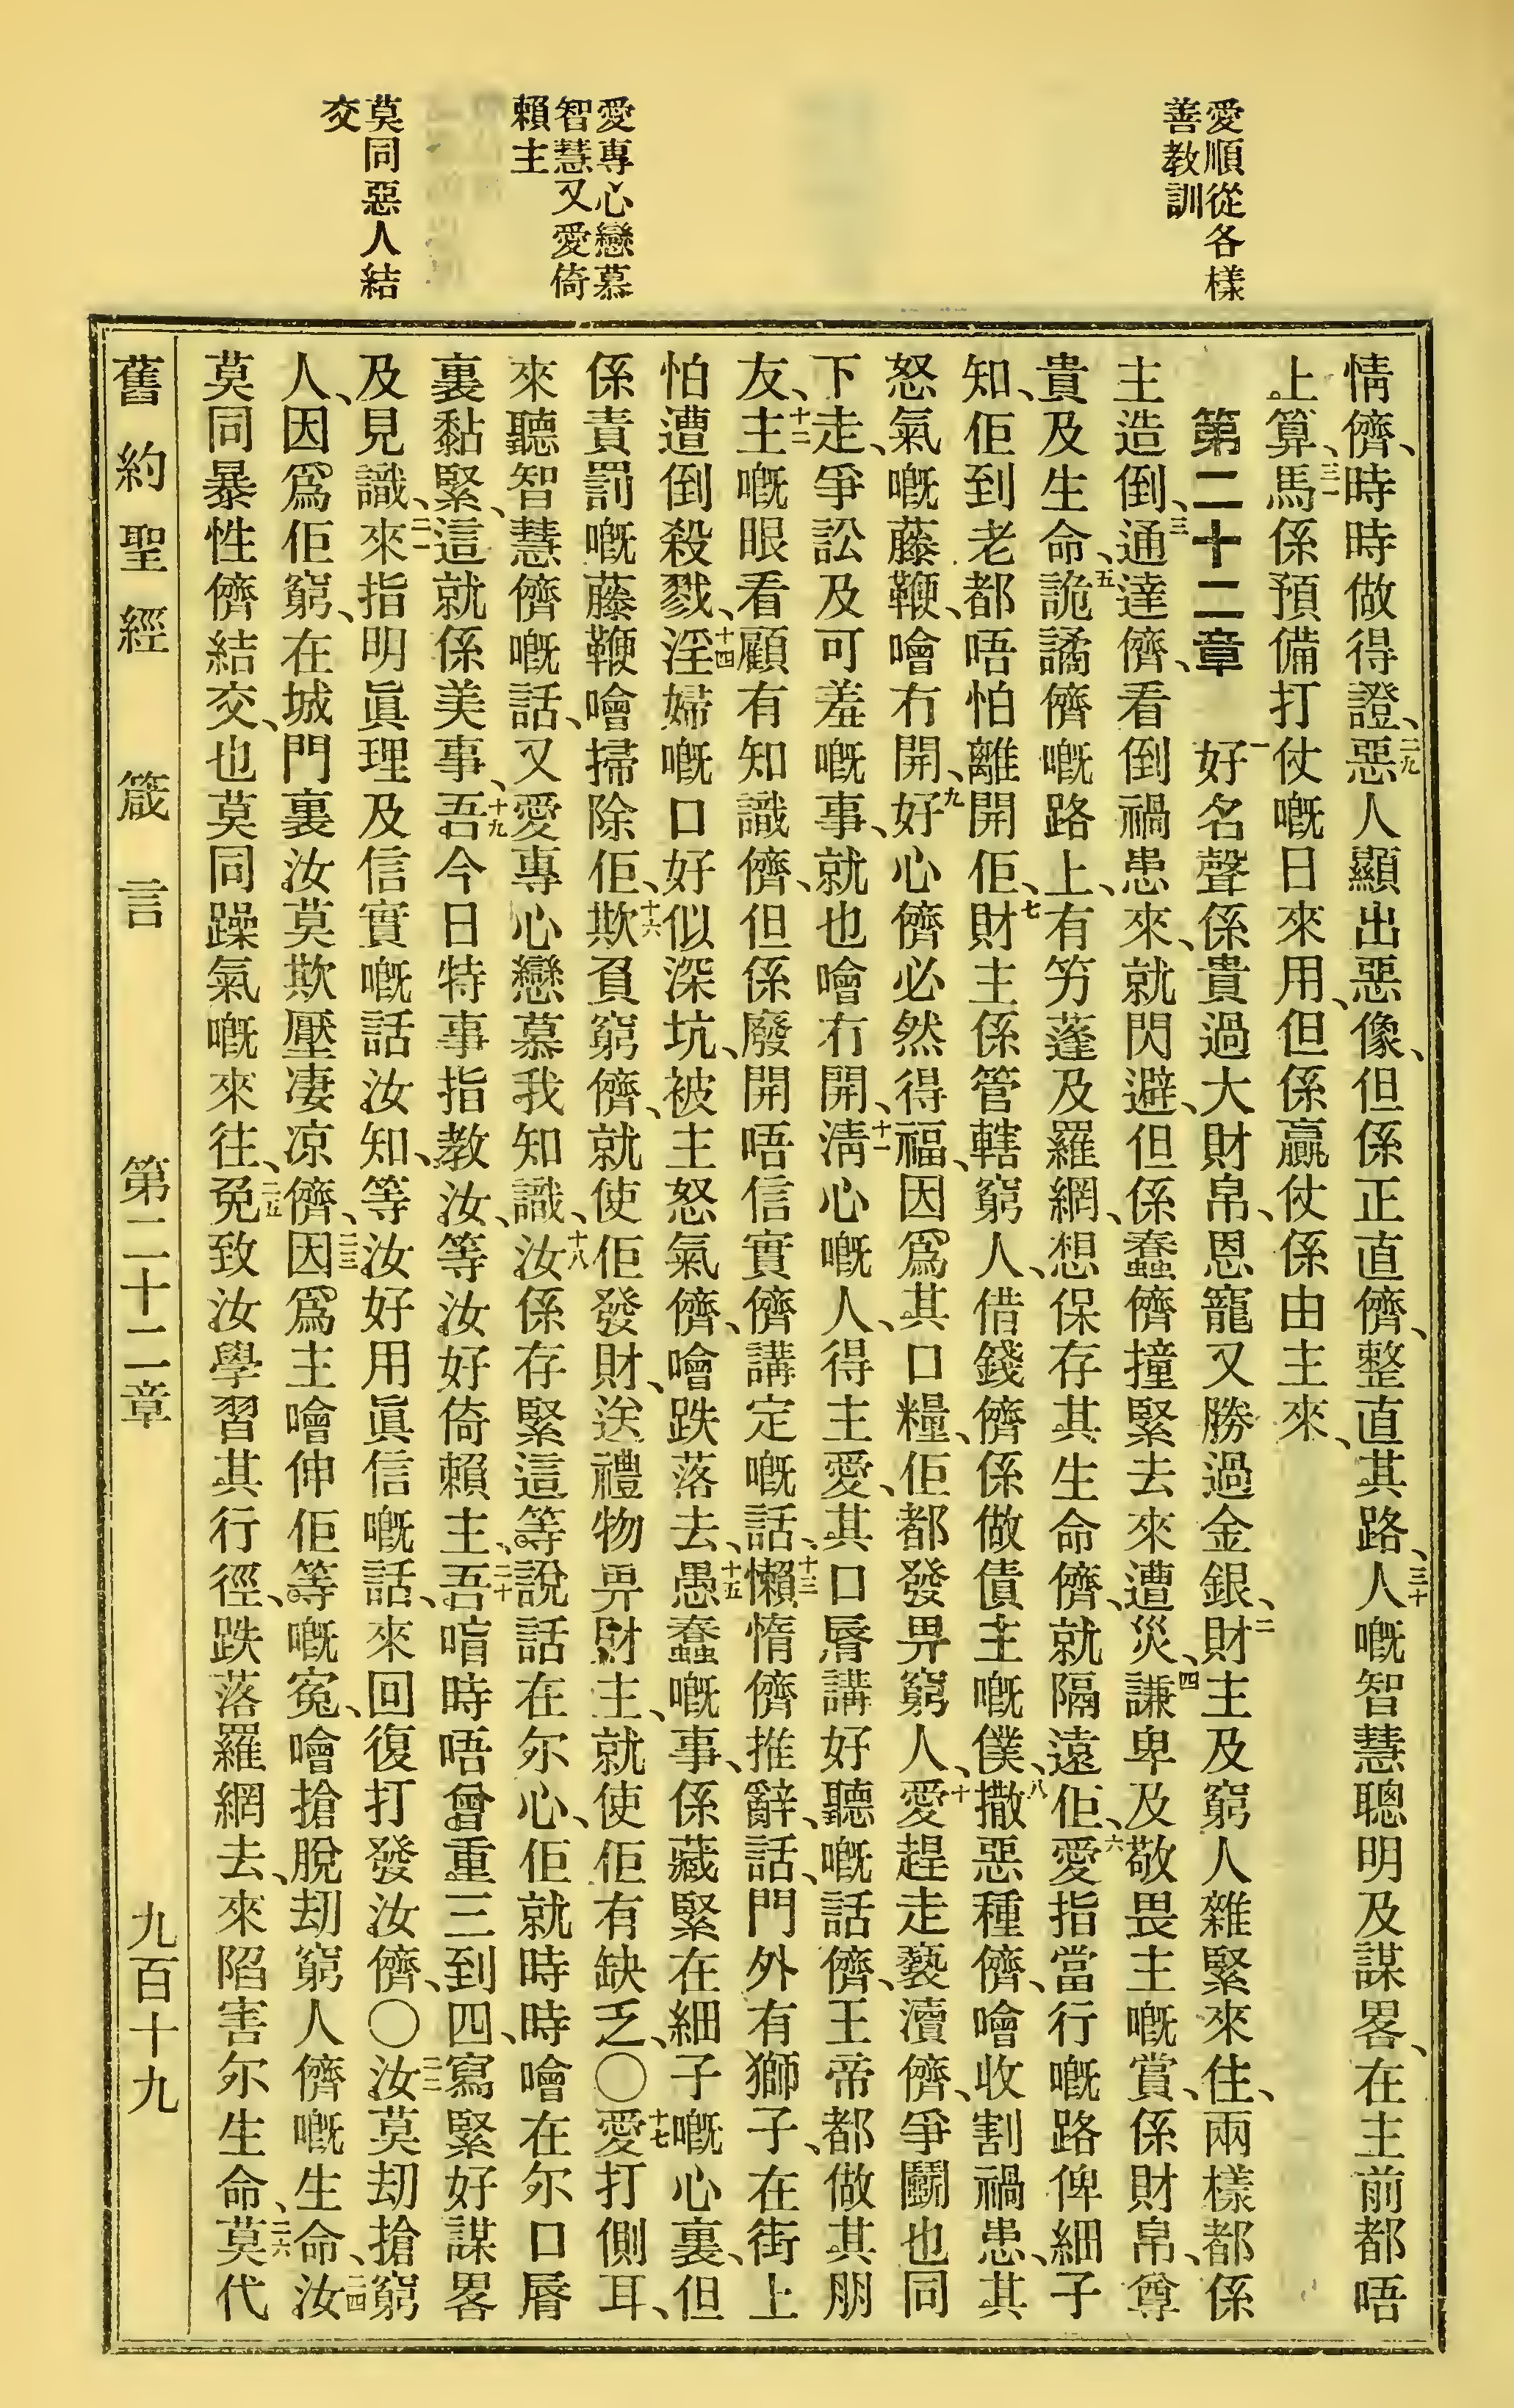 愛順從各樣
善教訓
愛專心戀慕
智慧又愛倚
賴主
莫同惡人結
交
情儕、時時做得證、二九惡人顯出惡像、但係正直儕、整直其路、三十人嘅智慧聰明及謀畧、在主前都唔
上算、三一馬係預備打仗嘅日來用、但係贏仗係由主來、
第二十二章 一好名聲係貴過大財帛、恩寵又勝過金銀、二財主及窮人雜緊來住、兩樣都係
主造倒、三通達儕、看倒禍患來、就閃避、但係蠢儕撞緊去來遭災、四謙卑及敬畏主嘅賞、係財帛、尊
貴及生命、五詭譎儕嘅路上、有竻蓬及羅網、想保存其生命儕、就隔遠佢、六愛指當行嘅路俾細子
知、佢到老都唔怕離開佢、七財主係管轄窮人、借錢儕係做債主嘅僕、八撒惡種儕、噲收割禍患、其
怒氣嘅藤鞭、噲冇開、九好心儕必然得福、因爲其口糧、佢都發畀窮人、十愛趕走褻瀆儕、爭鬭也同
下走、爭訟及可羞嘅事、就也噲冇開、十一淸心嘅人、得主愛、其口脣講好聽嘅話儕、王帝都做其朋
友、十二主嘅眼看顧有知識儕、但係廢開唔信實儕講定嘅話、十三懶惰儕推辭話、門外有獅子、在街上
怕遭倒殺戮、十四淫婦嘅口好似深坑、被主怒氣儕、噲跌落去、十五愚蠢嘅事、係藏緊在細子嘅心裏、但
係責罰嘅藤鞭噲掃除佢、十六欺負窮儕、就使佢發財、送禮物畀財主、就使佢有缺乏、〇十七愛打側耳、
來聽智慧儕嘅話、又愛專心戀慕我知識、十八汝係存緊這等說話在尔心、佢就時時噲在尔口脣
裏黏緊、這就係美事、十九吾今日特事指教汝、等汝好倚賴主、二十吾喑時唔曾重三到四、寫緊好謀畧
及見識、二一來指明眞理及信實嘅話汝知、等汝好用眞信嘅話、來回復打發汝儕、〇二二汝莫刧搶窮
人、因爲佢窮、在城門裏汝莫欺壓凄凉儕、二三因爲主噲伸佢等嘅寃、噲搶脫刧窮人儕嘅生命、二四汝
莫同暴性儕結交、也莫同躁氣嘅來往、二五免致汝學習其行徑、跌落羅網去、來陷害尔生命、二六莫代
舊約聖經 箴言 第二十二章 九百十九